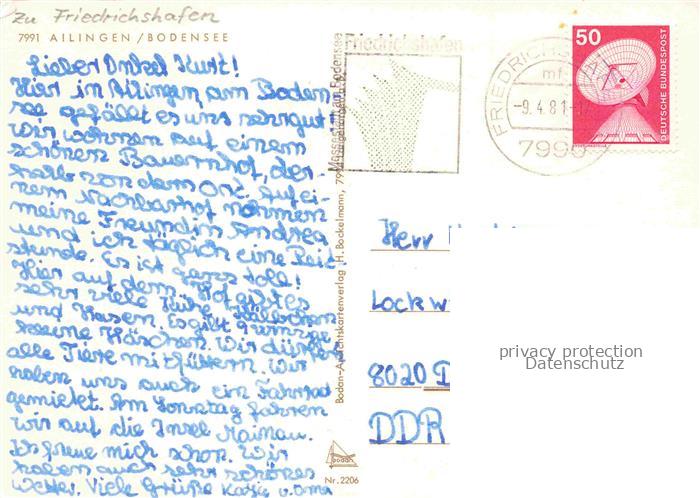 zu Friedrichshafen
7991 AILINGEN / BODENSEE
Lieber Onkel Kurt!
Hier in Ailingen am Boden-
see gefällt es uns sehr gut
Wir wohnen auf einem
schönen Bauernhof, der-
halb von dem Ort. Auf ei-
nem Nachbarhof nehmen
meine Freundin Andrea
und ich täglich eine Reit-
stunde. Es ist ganz toll!
Hier auf dem Hof gibt es
sehr viele Kühe, Kälbchen
und Hasen. Es gibt 9 winzige
kleine Häschen. Wir dürfen
alle Tiere mitfüttern. Wir
haben uns auch ein Fahrrad
gemietet. Am Sonntag fahren
wir auf die Insel Mainau.
Ich freue mich schon. Wir
haben auch sehr schönes
Wetter. Viele Grüße Katja u. Oma
Bodan-Ansichtskartenverlag H. Bockelmann, 799
bodan
Nr. 2206
Messestadt am Bodensee
Friedrichshafen
FRIEDRICHSHAFEN
mf
-9.4.81-
7990
50
DEUTSCHE BUNDESPOST
Herr
Lockw
8020 D
DDR
privacy protection
Datenschutz